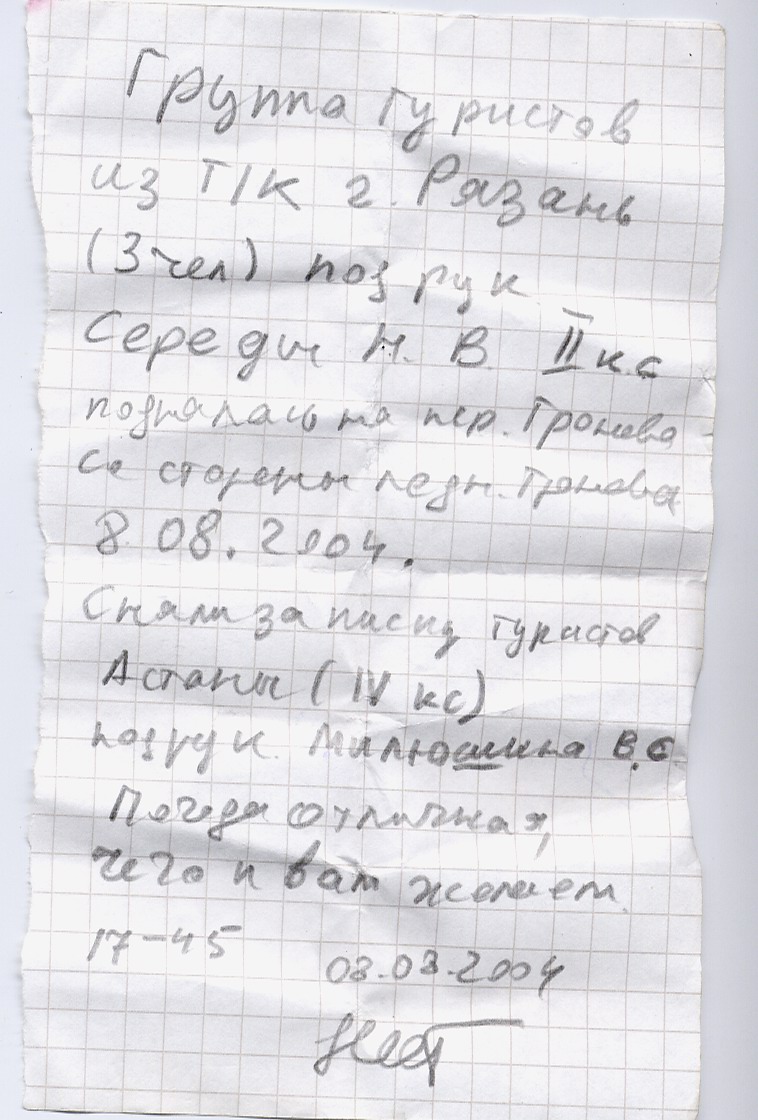 Группа туристов
из Т/К г. Рязань
(3 чел) под рук
Середы Н. В. II к.с
поднялась на пер. Тронова
со стороны ледн. Тронова
8 08. 2004.
Сняли записку туристов
Астаны (IV кс)
под рук. Милюшина В.С
Погода отличная,
чего и вам желаем.
17-45
08.08.2004